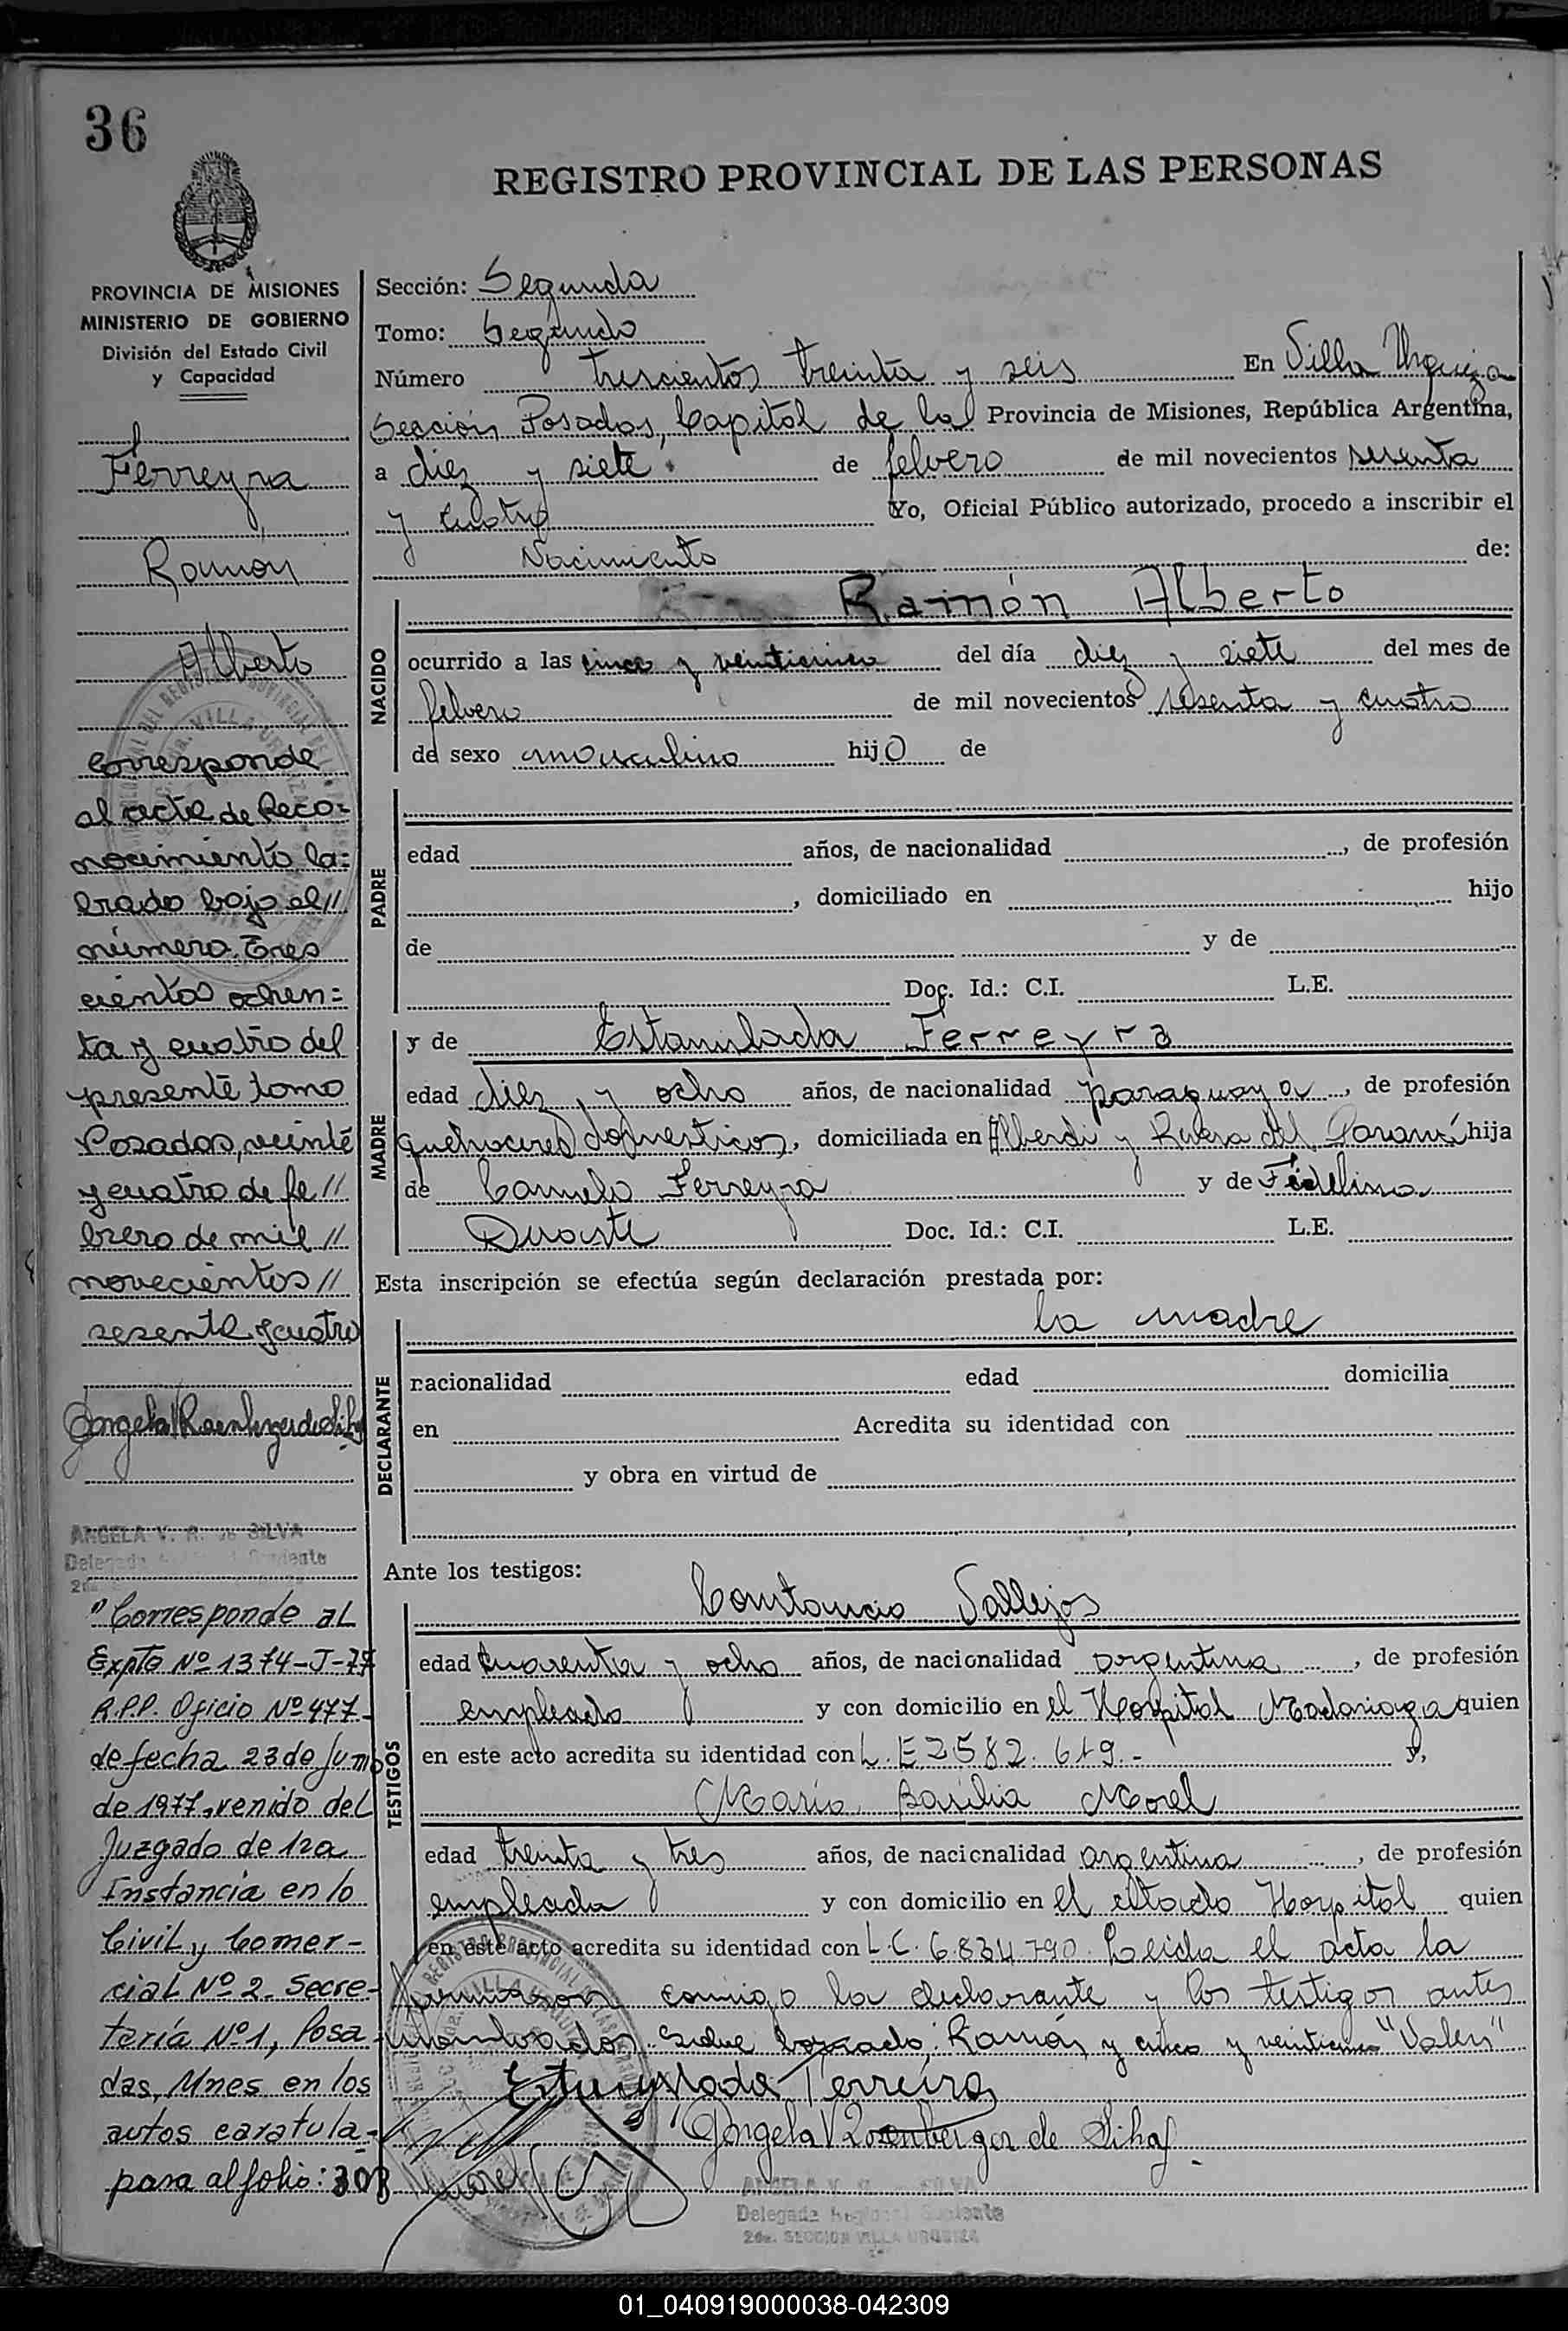 36
REGISTRO PROVINCIAL DE LAS PERSONAS
PROVINCIA DE MISIONES
MINISTERIO DE GOBIERNO
División del Estado Civil
y Capacidad
Ferreyra
Ramón
Alberto
Corresponde
al acta de Reco=
nocimiento la=
brado bajo el //
número Tres
cientos ochen=
ta y cuatro del
presente tomo
Posadas, veinte
y cuatro de fe //
brero de mil //
novecientos //
sesenta y cuatro
ANGELA V. R. de SILVA
"Corresponde al
Expte Nº 1374-J-77
R.P.P. Oficio Nº 477-
de fecha 23 de Junio
de 1977, venido del
Juzgado de 1ra
Instancia en lo
Civil y Comer-
cial Nº 2. Secre-
taría Nº 1, Posa-
das, Mnes en los
autos caratula-
pasa al folio: 308
Sección: Segunda
Tomo: Segundo
Número trescientos treinta y seis En Villa Urquiza
Sección Posadas, Capital de la Provincia de Misiones, República Argentina,
a diez y siete de febrero de mil novecientos sesenta
y cuatro Yo, Oficial Público autorizado, procedo a inscribir el
Nacimiento de:
NACIDO
Ramón Alberto
ocurrido a las cinco y veinticinco del día diez y siete del mes de
febrero de mil novecientos sesenta y cuatro
de sexo masculino hijo de
PADRE
edad años, de nacionalidad , de profesión
, domiciliado en hijo
de y de
Doc. Id.: C.I. L.E.
MADRE
y de Estanislada Ferreyra
edad diez y ocho años, de nacionalidad paraguaya , de profesión
quehaceres domesticos, domiciliada en Alberdi y Rivera del Paraná hija
de Camelo Ferreyra y de Fidelina
Duarte Doc. Id.: C.I. L.E.
Esta inscripción se efectúa según declaración prestada por:
DECLARANTE
la madre
nacionalidad edad domicilia
en Acredita su identidad con
y obra en virtud de
Ante los testigos:
TESTIGOS
Constancio Vallejos
edad cuarenta y ocho años, de nacionalidad argentina , de profesión
empleado y con domicilio en el Hospital Madariaga quien
en este acto acredita su identidad con L.E 2582.619.- y,
María Basilia Morel
edad treinta y tres años, de nacionalidad argentina , de profesión
empleada y con domicilio en el citado Hospital quien
en este acto acredita su identidad con L.C. 6.834.790. Leida el acta la
firmaron conmigo la declarante y los testigos antes
nombrados. Sobre borrado: Ramón y cinco y veinticinco "Valen"
Estanislada Ferreira
Angela V Rosenberger de Silva
ANGELA V. R. SILVA
Delegada Regional Suplente
2da. SECCION VILLA URQUIZA
01_040919000038-042309